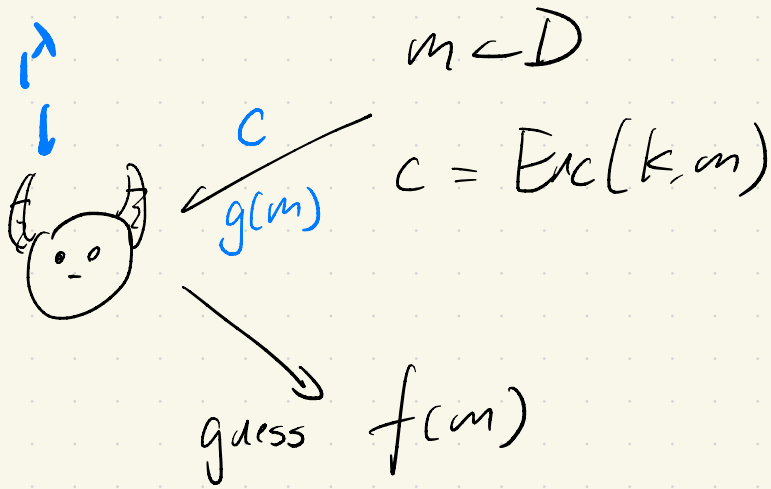 1^λ
m ← D
c
c = Enc(k, m)
g(m)
guess f(m)